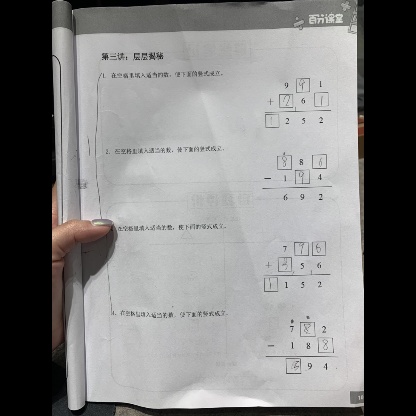 百分课堂
第三讲：层层揭秘
1. 在空格里填入适当的数，使下面的竖式成立。
9 9 1
+ 2 6 1
1 2 5 2
2. 在空格里填入适当的数，使下面的竖式成立。
8 8 6
- 1 9 4
6 9 2
在空格里填入适当的数，使下面的竖式成立。
7 9 6
+ 3 5 6
1 1 5 2
4. 在空格里填入适当的数，使下面的竖式成立。
7 8 2
- 1 8 8
5 9 4